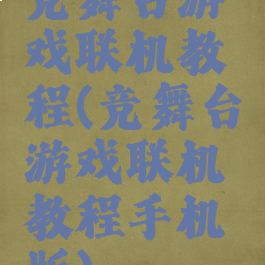 竞舞台游
戏联机教
程(竞舞台
游戏联机
教程手机
版)